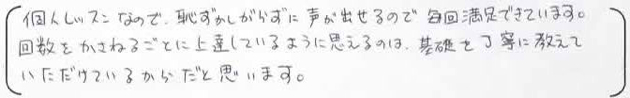 個人レッスンなので、恥ずかしがらずに声が出せるので毎回満足できています。
回数をかさねるごとに上達しているように思えるのは、基礎を丁寧に教えて
いただけているからだと思います。